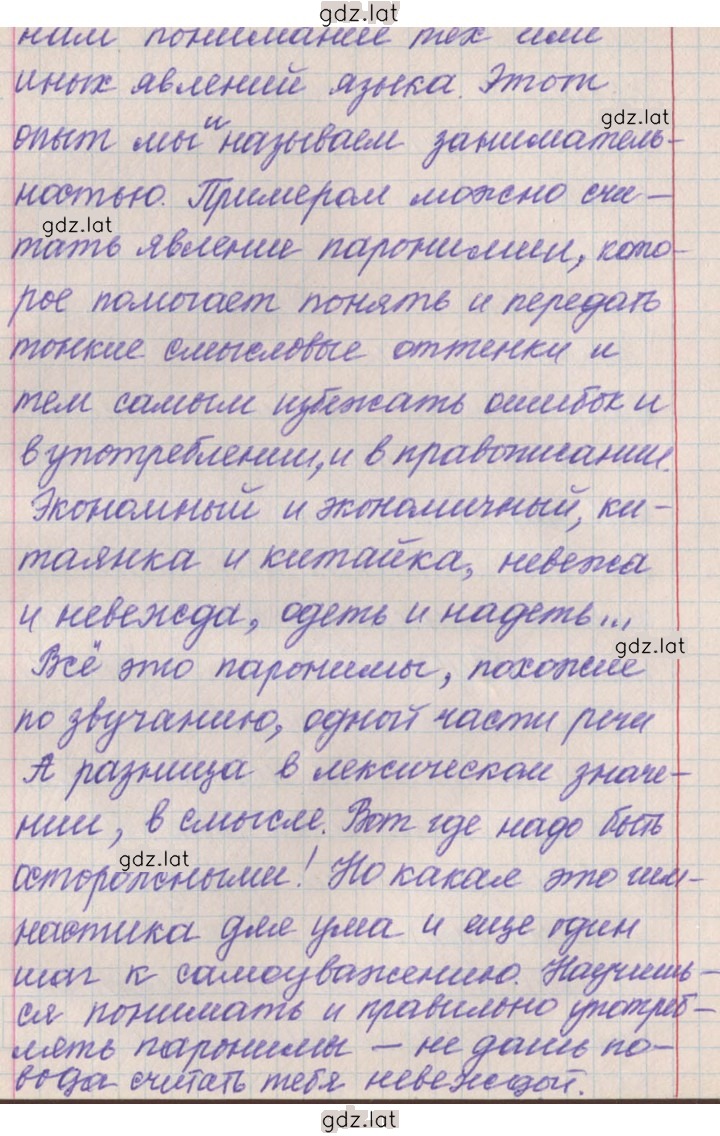 gdz.lat
ним понимание тех или
иных явлений языка. Этот
gdz.lat
опыт мы и называем заниматель-
ностью. Примером можно счи-
gdz.lat
тать явление паронимии, кото-
рое помогает понять и передать
тонкие смысловые оттенки и
тем самым избежать ошибок и
в употреблении, и в правописании.
Экономный и экономичный, ки-
таянка и китайка, невежа
и невежда, одеть и надеть...
gdz.lat
Всё это паронимы, похожие
по звучанию, одной части речи
А разница в лексическом значе-
нии, в смысле. Вот где надо быть
gdz.lat
осторожными! Но какая это гим-
настика для ума и еще один
шаг к самоуважению. Научишь-
ся понимать и правильно употреб-
лять паронимы — не дашь по-
вода считать тебя невеждой.
gdz.lat